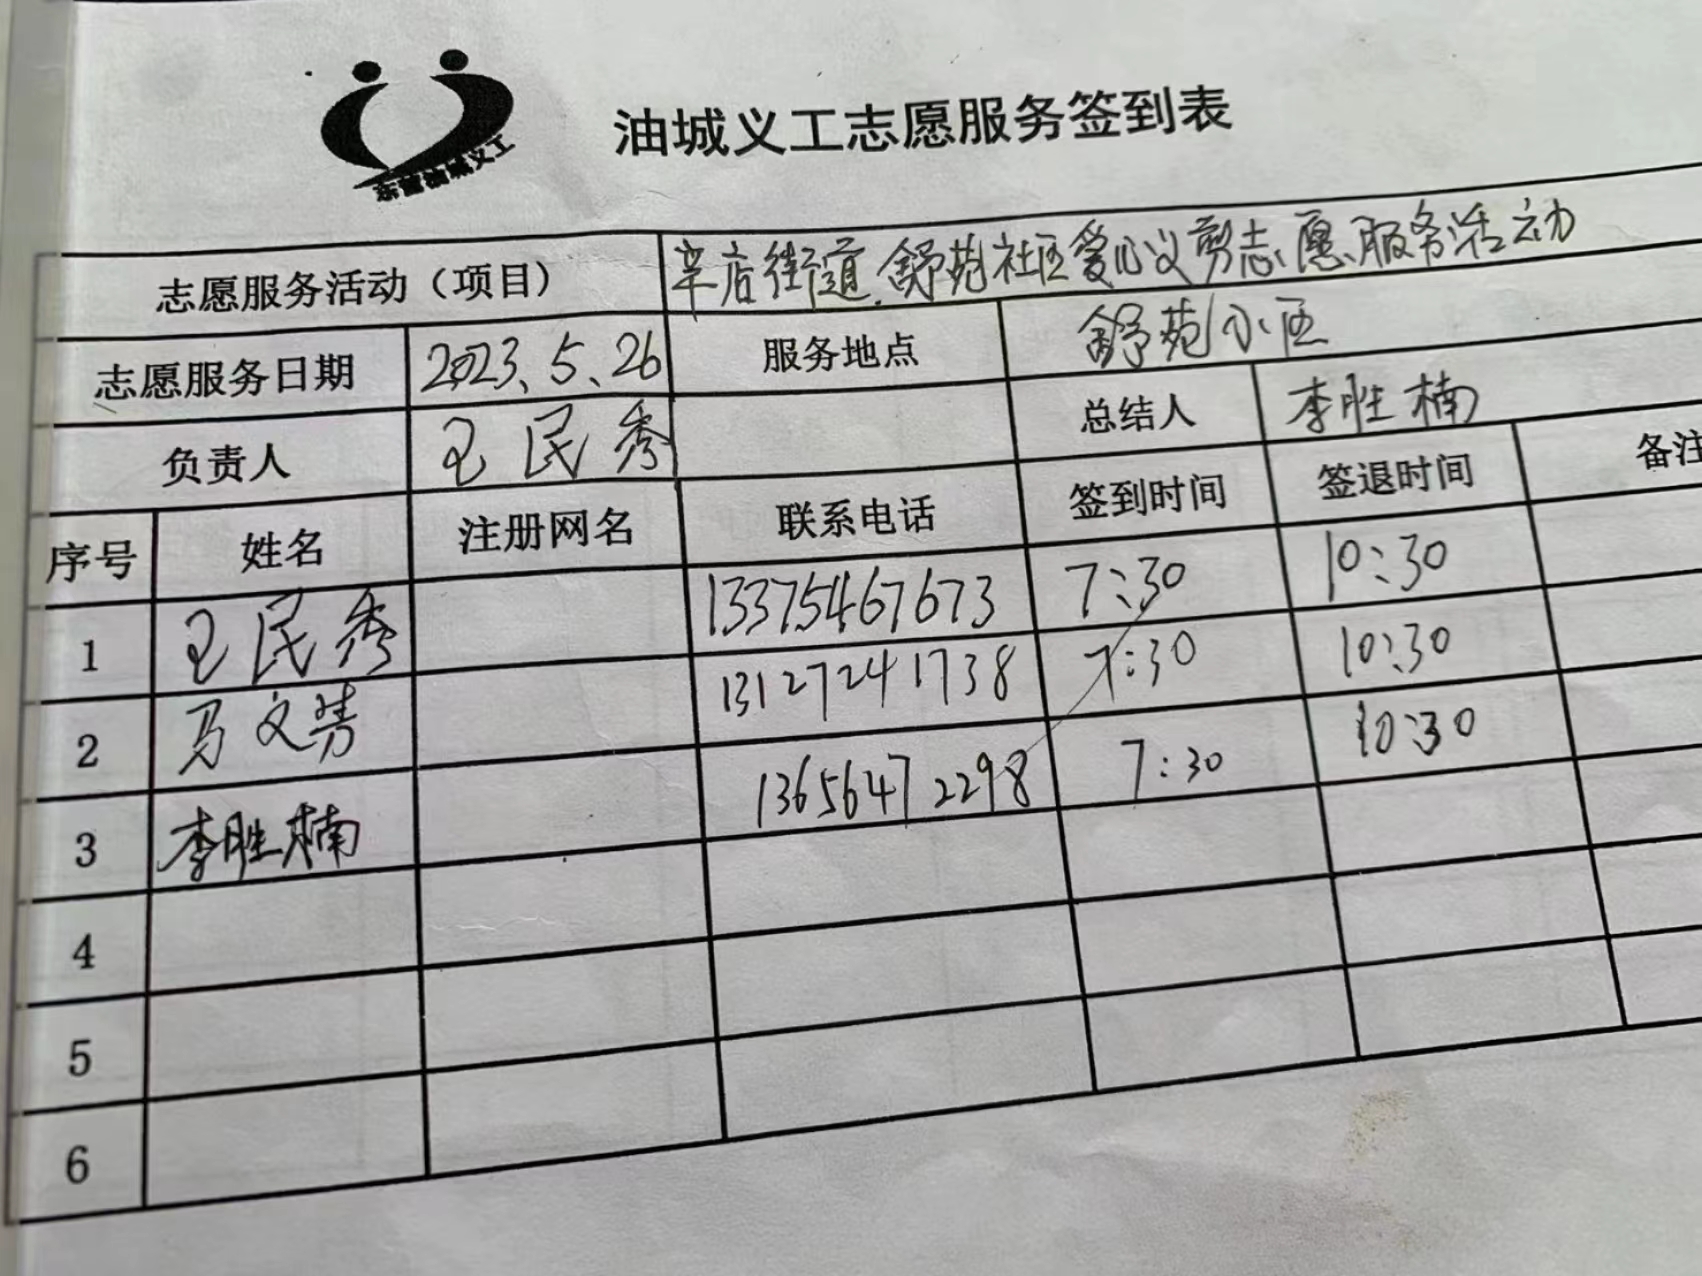 东营油城义工
油城义工志愿服务签到表
志愿服务活动（项目） 辛店街道.舒苑社区爱心义剪志愿服务活动
志愿服务日期 2023、5、26 服务地点 舒苑小区
负责人 王民秀 总结人 李胜楠
序号 姓名 注册网名 联系电话 签到时间 签退时间 备注
1 王民秀 13375467673 7:30 10:30
2 马文菁 13127241738 7:30 10:30
3 李胜楠 13656472298 7:30 10:30
4
5
6